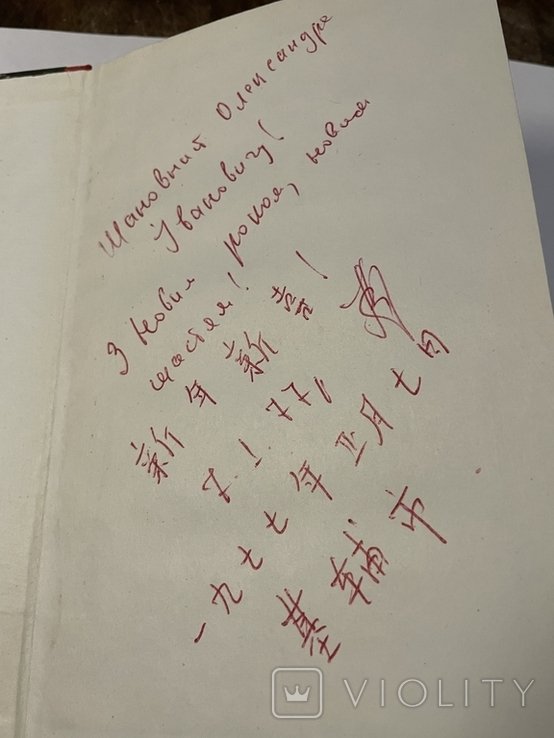 Шановний Олександре
Івановичу!
З Новим роком, новим
щастям!
新年新喜!
7.1.77р
一九七七年正月七日
基辅市
VIOLITY